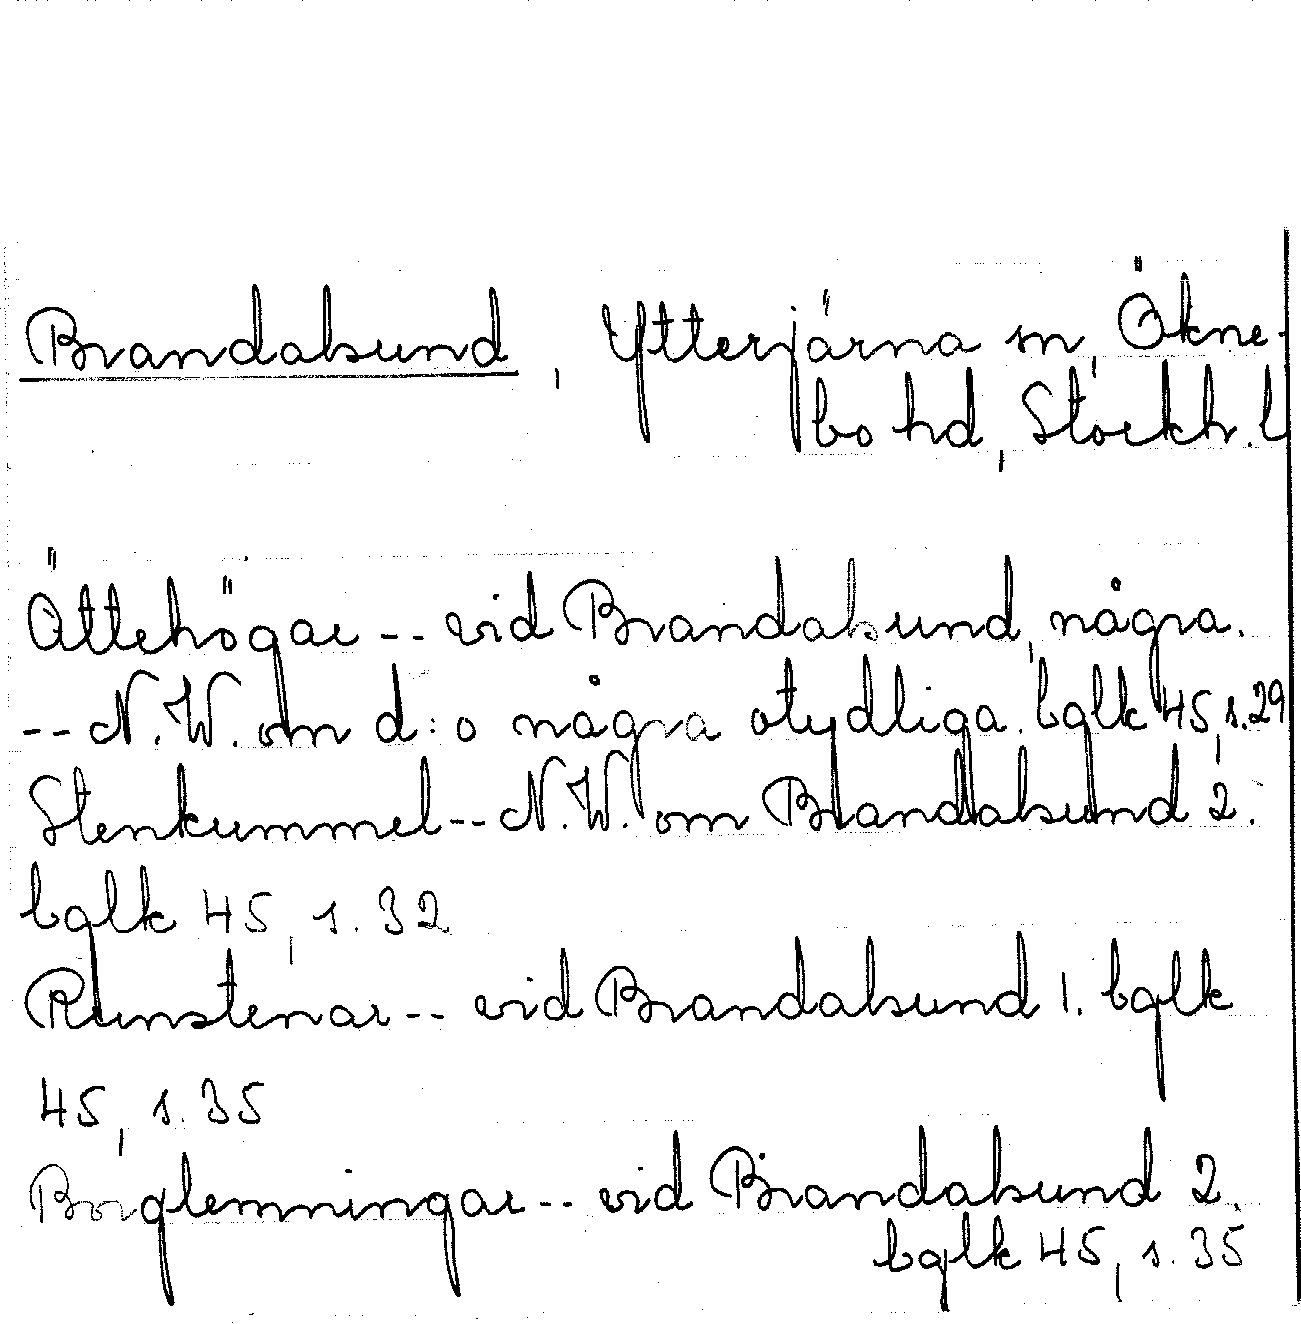 Brandalsund, Ytterjärna sn, Ökne-
bo hd, Stockh. l
Ättehögar -- vid Brandalsund, några.
-- N.W. om d:o några otydliga. bglk 45, s. 29
Stenkummel -- N.W. om Brandalsund 2.
bglk 45, s. 32
Runstenar -- vid Brandalsund 1. bglk
45, s. 35
Borglemningar -- vid Brandalsund 2.
bglk 45, s. 35